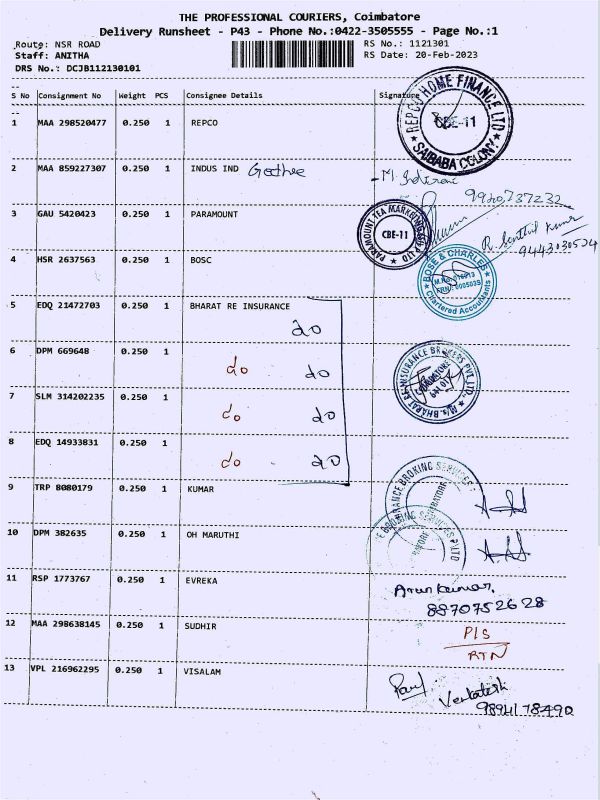 THE PROFESSIONAL COURIERS, Coimbatore
Delivery Runsheet - P43 - Phone No.:0422-3505555 - Page No.:1
Route: NSR ROAD RS No.: 1121301
Staff: ANITHA RS Date: 20-Feb-2023
DRS No.: DCJB112130101
S No Consignment No Weight PCS Consignee Details Signature
1 MAA 298520477 0.250 1 REPCO
REPCO HOME FINANCE LTD CBE-11 SAIBABA COLONY
2 MAA 859227307 0.250 1 INDUS IND Geetha
M. Indirani
9920737232
3 GAU 5420423 0.250 1 PARAMOUNT
PARAMOUNT TEA MARKETING PVT LTD CBE-11
R. Senthil Kumar
9443030524
4 HSR 2637563 0.250 1 BOSC
BOSE & CHARLES Chartered Accountants
5 EDQ 21472703 0.250 1 BHARAT RE INSURANCE
do
6 DPM 669648 0.250 1 do do
M/s. BHARAT RE-INSURANCE BROKERS PVT. LTD.,
7 SLM 314202235 0.250 1 do do
8 EDQ 14933831 0.250 1 do do
9 TRP 8080179 0.250 1 KUMAR
INSURANCE BROKING SERVICES
10 DPM 382635 0.250 1 OH MARUTHI
BROKING SERVICES PVT LTD
11 RSP 1773767 0.250 1 EVREKA
Arun kumar.
8870752628
12 MAA 298638145 0.250 1 SUDHIR
P/S
RTN
13 VPL 216962295 0.250 1 VISALAM
Venkatesh
9894178490